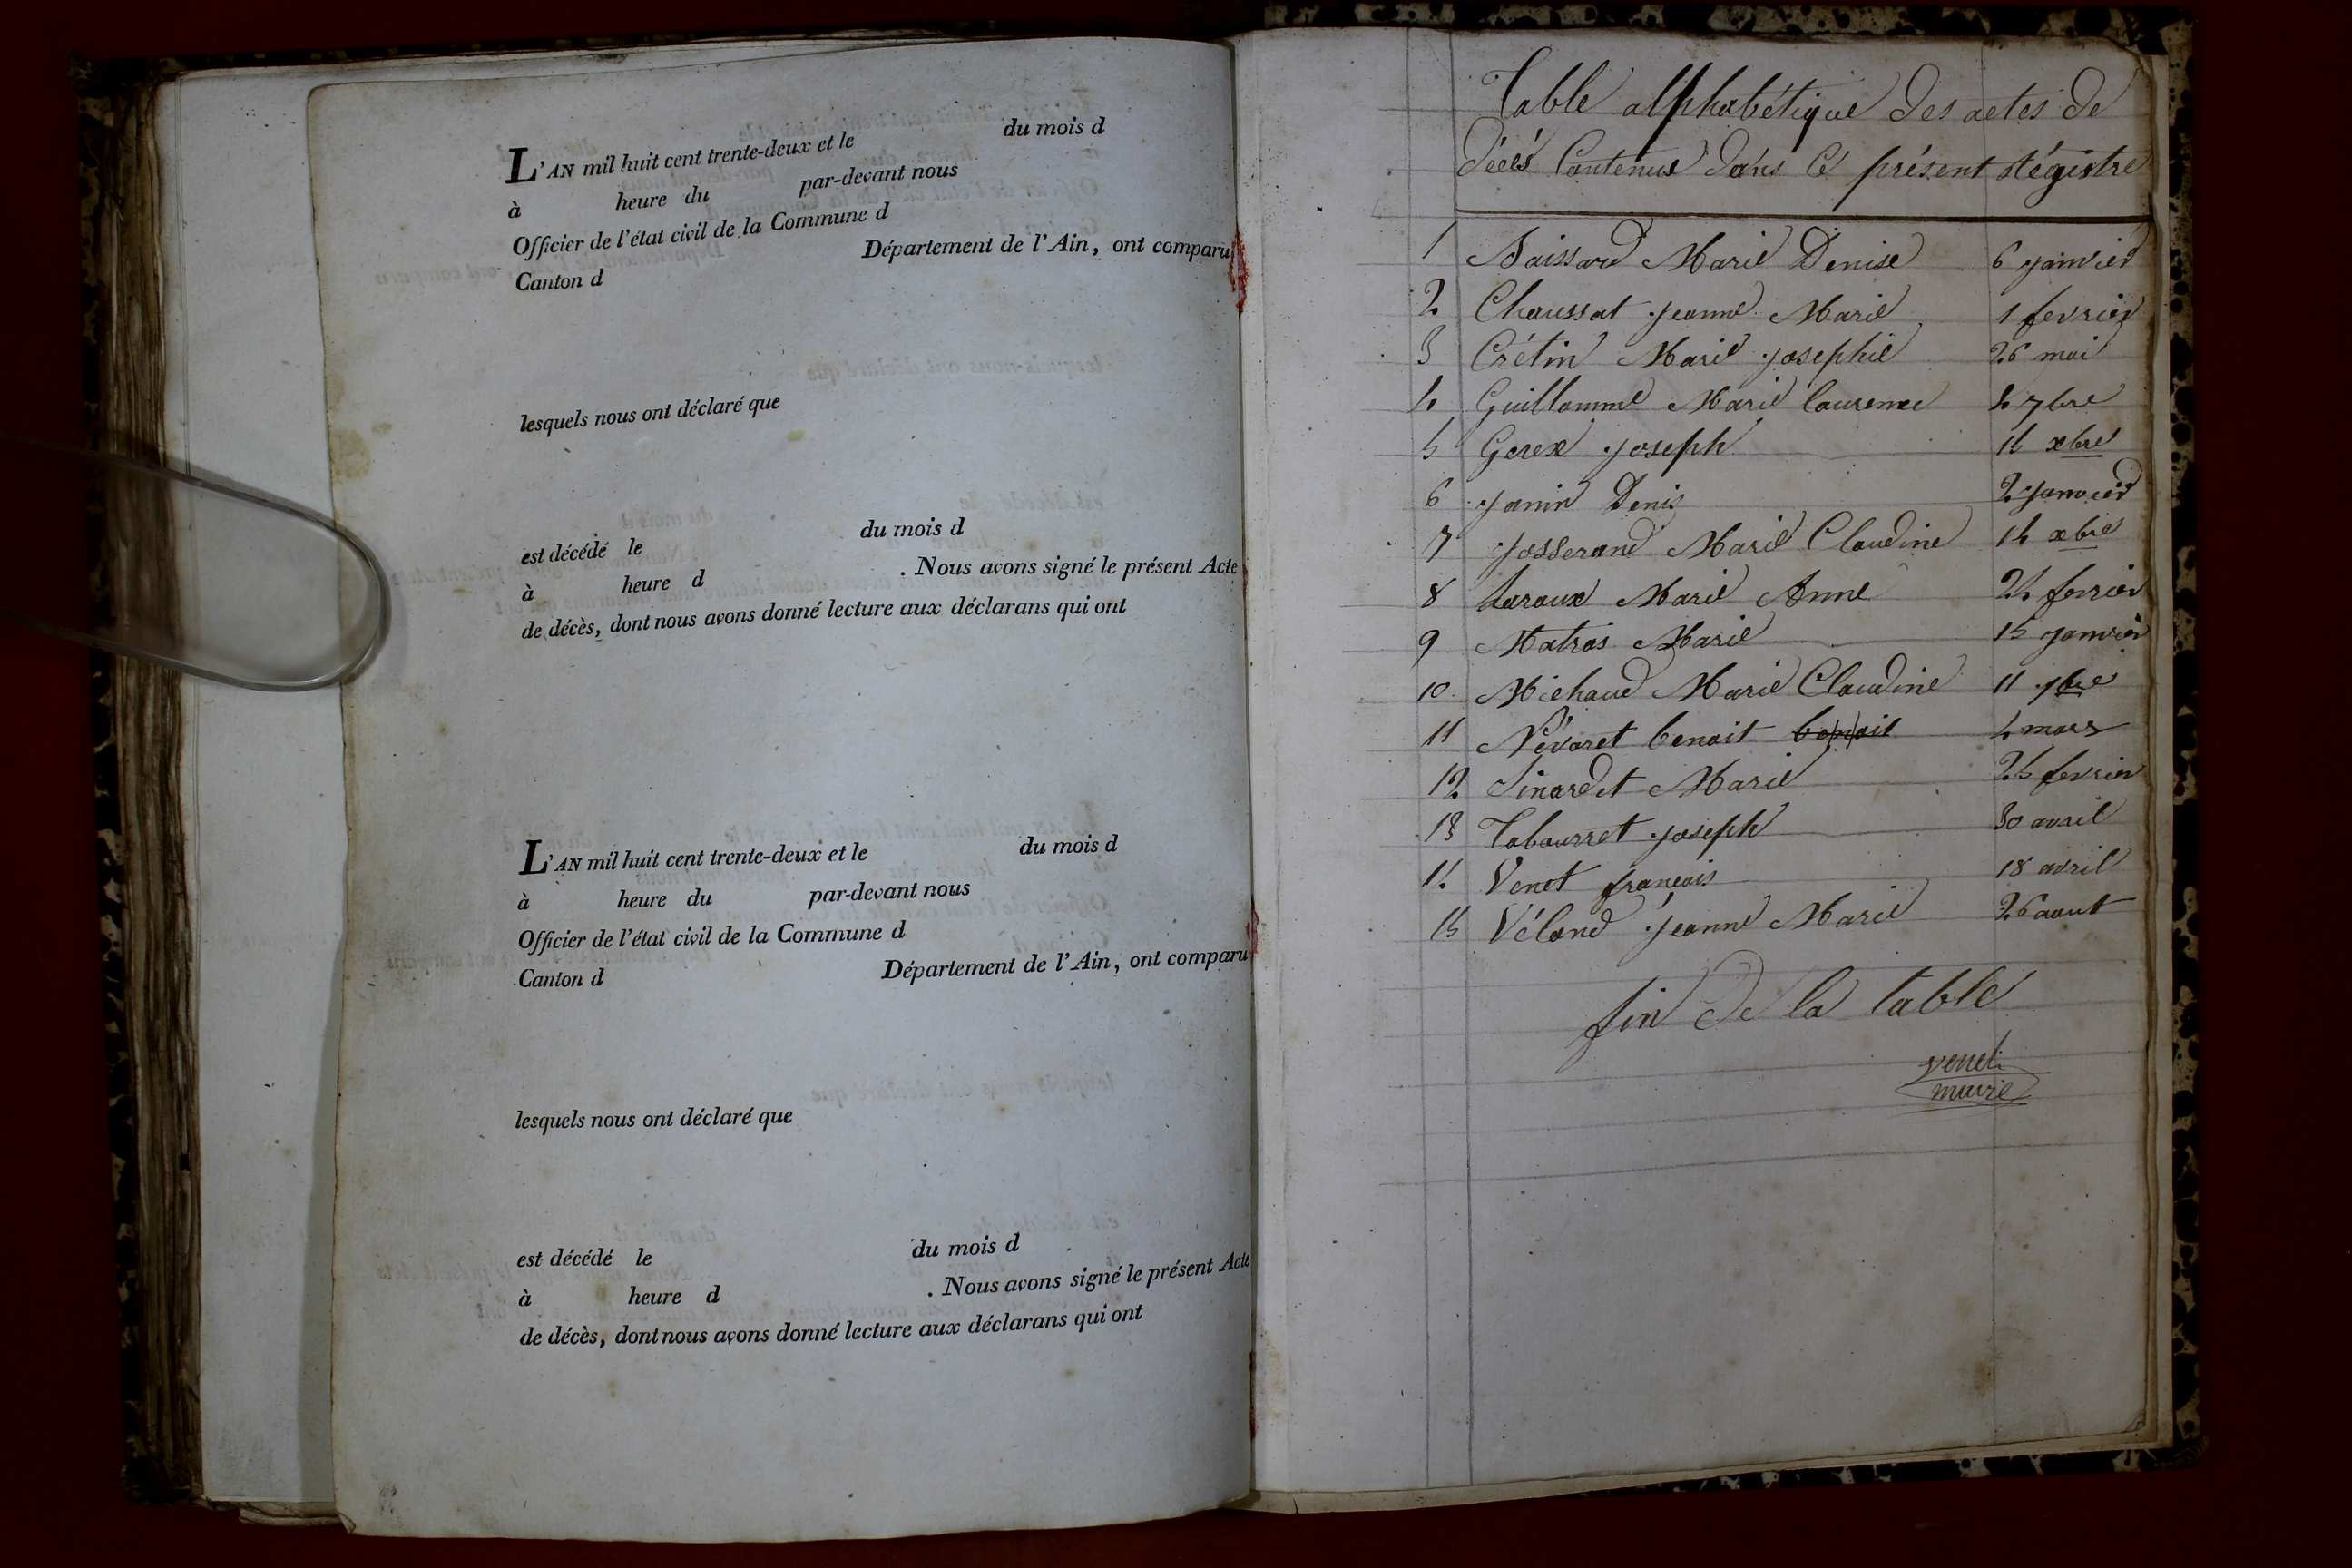 L'AN mil huit cent trente-deux et le du mois d
à heure du par-devant nous
Officier de l'état civil de la Commune d
Canton d Département de l'Ain, ont comparu
lesquels nous ont déclaré que
est décédé le du mois d
à heure d . Nous avons signé le présent Acte
de décès, dont nous avons donné lecture aux déclarans qui ont
L'AN mil huit cent trente-deux et le du mois d
à heure du par-devant nous
Officier de l'état civil de la Commune d
Canton d Département de l'Ain, ont comparu
lesquels nous ont déclaré que
est décédé le du mois d
à heure d . Nous avons signé le présent Acte
de décès, dont nous avons donné lecture aux déclarans qui ont
Table alphabétique des actes de
décés Contenus dans Ce présent Régistre
1 Marie Denise 6 janvier
2 Chaussat jeanne Marie 1 fevrier
3 Crétin Marie josephie 26 mai
4 Guillomme Marie laurence 4 7bre
5 Gerex joseph xbre
6 janin Denis 2 janvier
7 josserand Marie Claudine 14 xbre
8 Laroux Marie Anne 24 fevrier
9 Matras Marie 15 janvier
10 Michaud Marie Claudine 11
11 Névoret benoit benoit 4 mars
12 Sinardet Marie 25 fevrier
13 Tabourret joseph 30 avril
14 Venet françois 18 avril
15 Véland jeanne Marie 26 aout
fin de la table
venet
maire